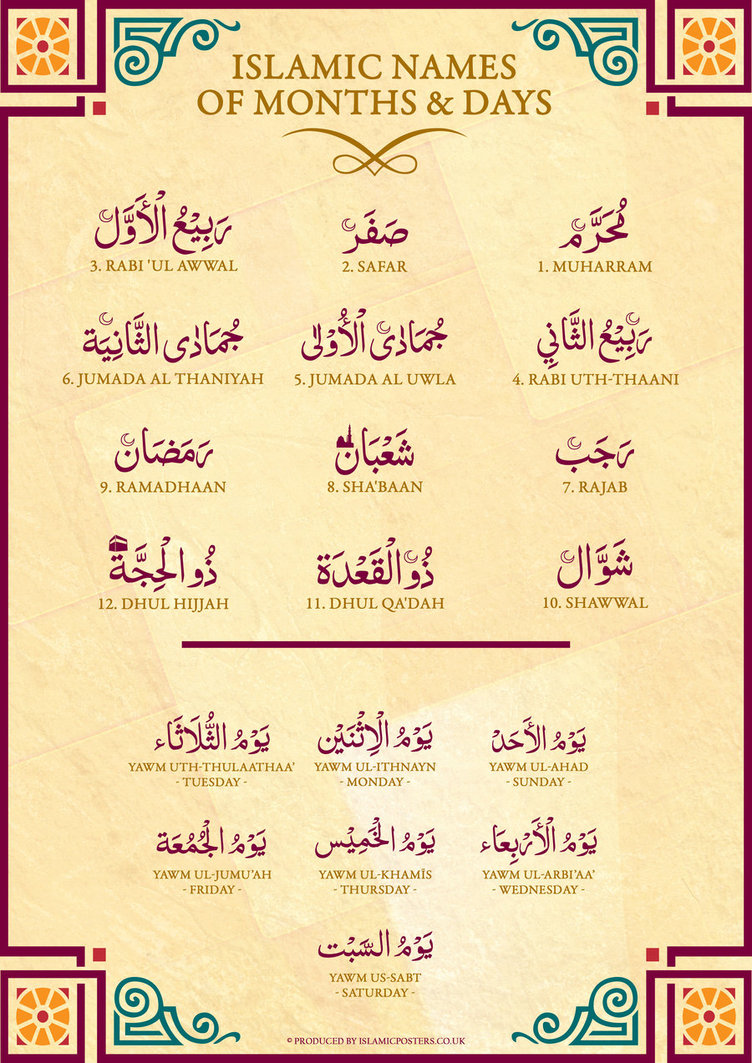 ISLAMIC NAMES
OF MONTHS & DAYS
مُحَرَّم
1. MUHARRAM
صَفَر
2. SAFAR
رَبِيْعُ الْأَوَّل
3. RABI 'UL AWWAL
رَبِيْعُ الثَّانِي
4. RABI UTH-THAANI
جُمَادَى الْأُوْلَى
5. JUMADA AL UWLA
جُمَادَى الثَّانِيَة
6. JUMADA AL THANIYAH
رَجَب
7. RAJAB
شَعْبَان
8. SHA'BAAN
رَمَضَان
9. RAMADHAAN
شَوَّال
10. SHAWWAL
ذُو الْقَعْدَة
11. DHUL QA'DAH
ذُو الْحِجَّة
12. DHUL HIJJAH
يَوْمُ الْأَحَدْ
YAWM UL-AHAD
- SUNDAY -
يَوْمُ الْاِثْنَيْن
YAWM UL-ITHNAYN
- MONDAY -
يَوْمُ الثُّلَاثَاء
YAWM UTH-THULAATHAA'
- TUESDAY -
يَوْمُ الْأَرْبِعَاء
YAWM UL-ARBI'AA'
- WEDNESDAY -
يَوْمُ الْخَمِيْس
YAWM UL-KHAMĪS
- THURSDAY -
يَوْمُ الْجُمُعَة
YAWM UL-JUMU'AH
- FRIDAY -
يَوْمُ السَّبْت
YAWM US-SABT
- SATURDAY -
© PRODUCED BY ISLAMICPOSTERS.CO.UK